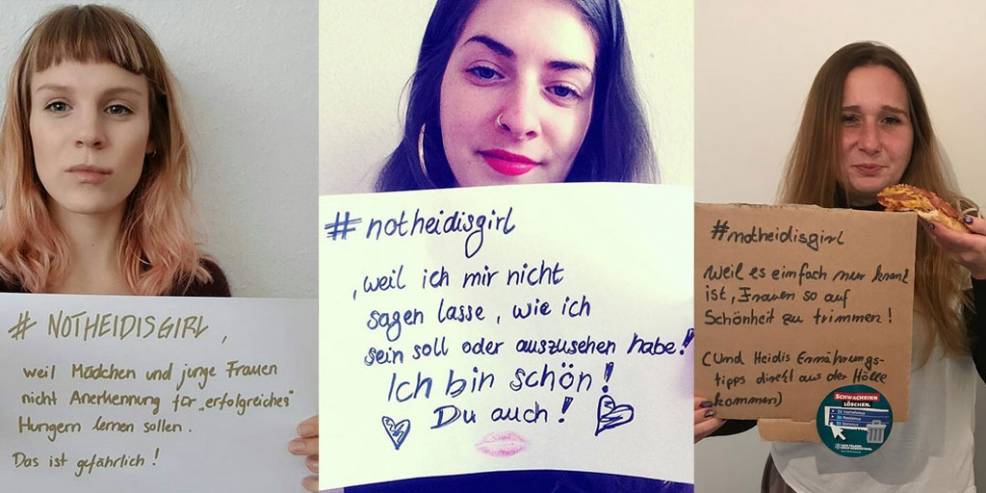 # NOTHEIDISGIRL,
weil Mädchen und junge Frauen
nicht Anerkennung für „erfolgreiches"
Hungern lernen sollen.
Das ist gefährlich!
# notheidisgirl
, weil ich mir nicht
sagen lasse, wie ich
sein soll oder auszusehen habe!
Ich bin schön!
Du auch!
#notheidisgirl
Weil es einfach nur krank
ist, Frauen so auf
Schönheit zu trimmen!
(Und Heidis Ernährungs-
tipps direkt aus der Hölle
kommen)
SCHWACHSINN
LÖSCHEN.